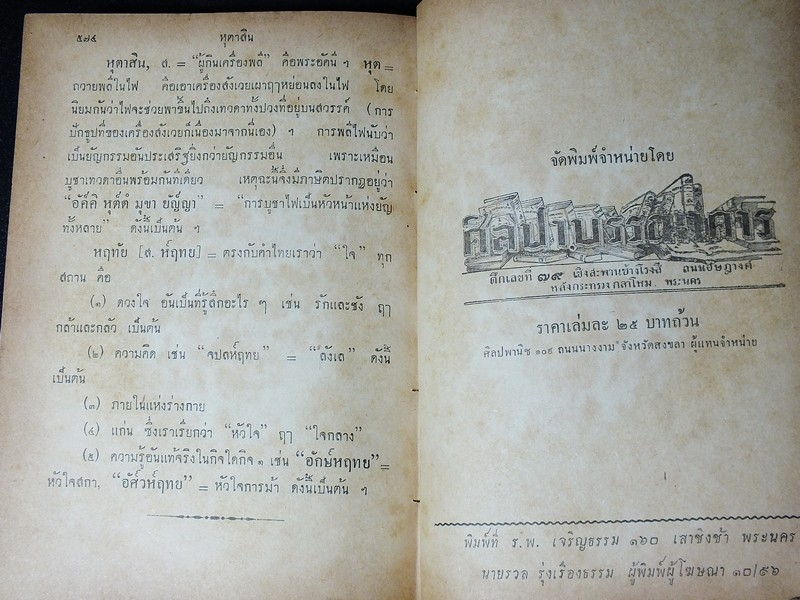 ๕๗๔ หุตาสิน
หุตาสิน, ส. = “ผู้กินเครื่องพลี” คือพระอัคนี ฯ หุต =
ถวายพลีในไฟ คือเอาเครื่องสังเวยเผาฤๅหย่อนลงในไฟ โดย
นิยมกันว่าไฟจะช่วยพาขึ้นไปถึงเทวดาทั้งปวงที่อยู่บนสวรรค์ (การ
ปักธูปที่ของเครื่องสังเวยก็เนื่องมาจากนี่เอง) ฯ การพลีไฟนับว่า
เป็นยัญกรรมอันประเสริฐยิ่งกว่ายัญกรรมอื่น เพราะเหมือน
บูชาเทวดาอื่นพร้อมกันทีเดียว เหตุฉะนี้จึ่งมีภาษิตปรากฏอยู่ว่า
“อัคฺคิ หุตฺตํ มุขา ยัญฺญา” = “การบูชาไฟเป็นหัวหน้าแห่งยัญ
ทั้งหลาย” ดั่งนี้เป็นต้น ฯ
หฤทัย [ส. ห์ฤทย] = ตรงกับคำไทยเราว่า “ใจ” ทุก
สถาน คือ
(๑) ดวงใจ อันเป็นที่รู้สึกอะไร ๆ เช่น รักและชัง ฤๅ
กล้าและกลัว เป็นต้น
(๒) ความคิด เช่น “จปลห์ฤทย” = “ลังเล” ดั่งนี้
เป็นต้น
(๓) ภายในแห่งร่างกาย
(๔) แก่น ซึ่งเราเรียกว่า “หัวใจ” ฤๅ “ใจกลาง”
(๕) ความรู้อันแท้จริงในกิจใดกิจ ๑ เช่น “อักษ์หฤทย” =
หัวใจสกา, “อัศ์วห์ฤทย” = หัวใจการม้า ดั่งนี้เป็นต้น ฯ
จัดพิมพ์จำหน่ายโดย
ศิลปาบรรณาคาร
ตึกเลขที่ ๗๙ เชิงสะพานช้างโรงสี ถนนอัษฎางค์
หลังกระทรวงกลาโหม. พระนคร
ราคาเล่มละ ๒๕ บาทถ้วน
ศิลปพานิช ๑๐๙ ถนนนางงาม จังหวัดสงขลา ผู้แทนจำหน่าย
พิมพ์ที่ ร.พ. เจริญธรรม ๑๖๐ เสาชิงช้า พระนคร
นายรวล รุ่งเรืองธรรม ผู้พิมพ์ผู้โฆษณา ๑๐/๙๖